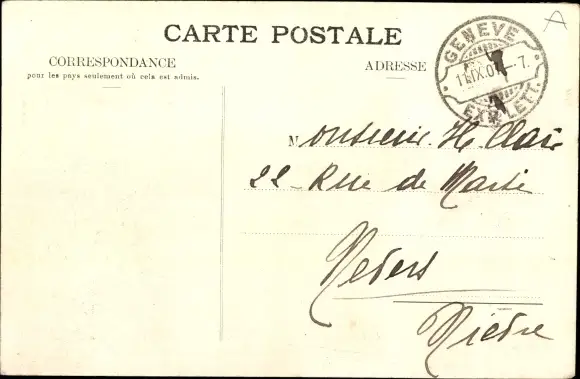 CARTE POSTALE
CORRESPONDANCE
pour les pays seulement où cela est admis.
ADRESSE
GENÈVE
1.IX.07.–7.
EXP. LETT.
A
Monsieur H. Clair
22 - Rue de
Nevers
Nièvre